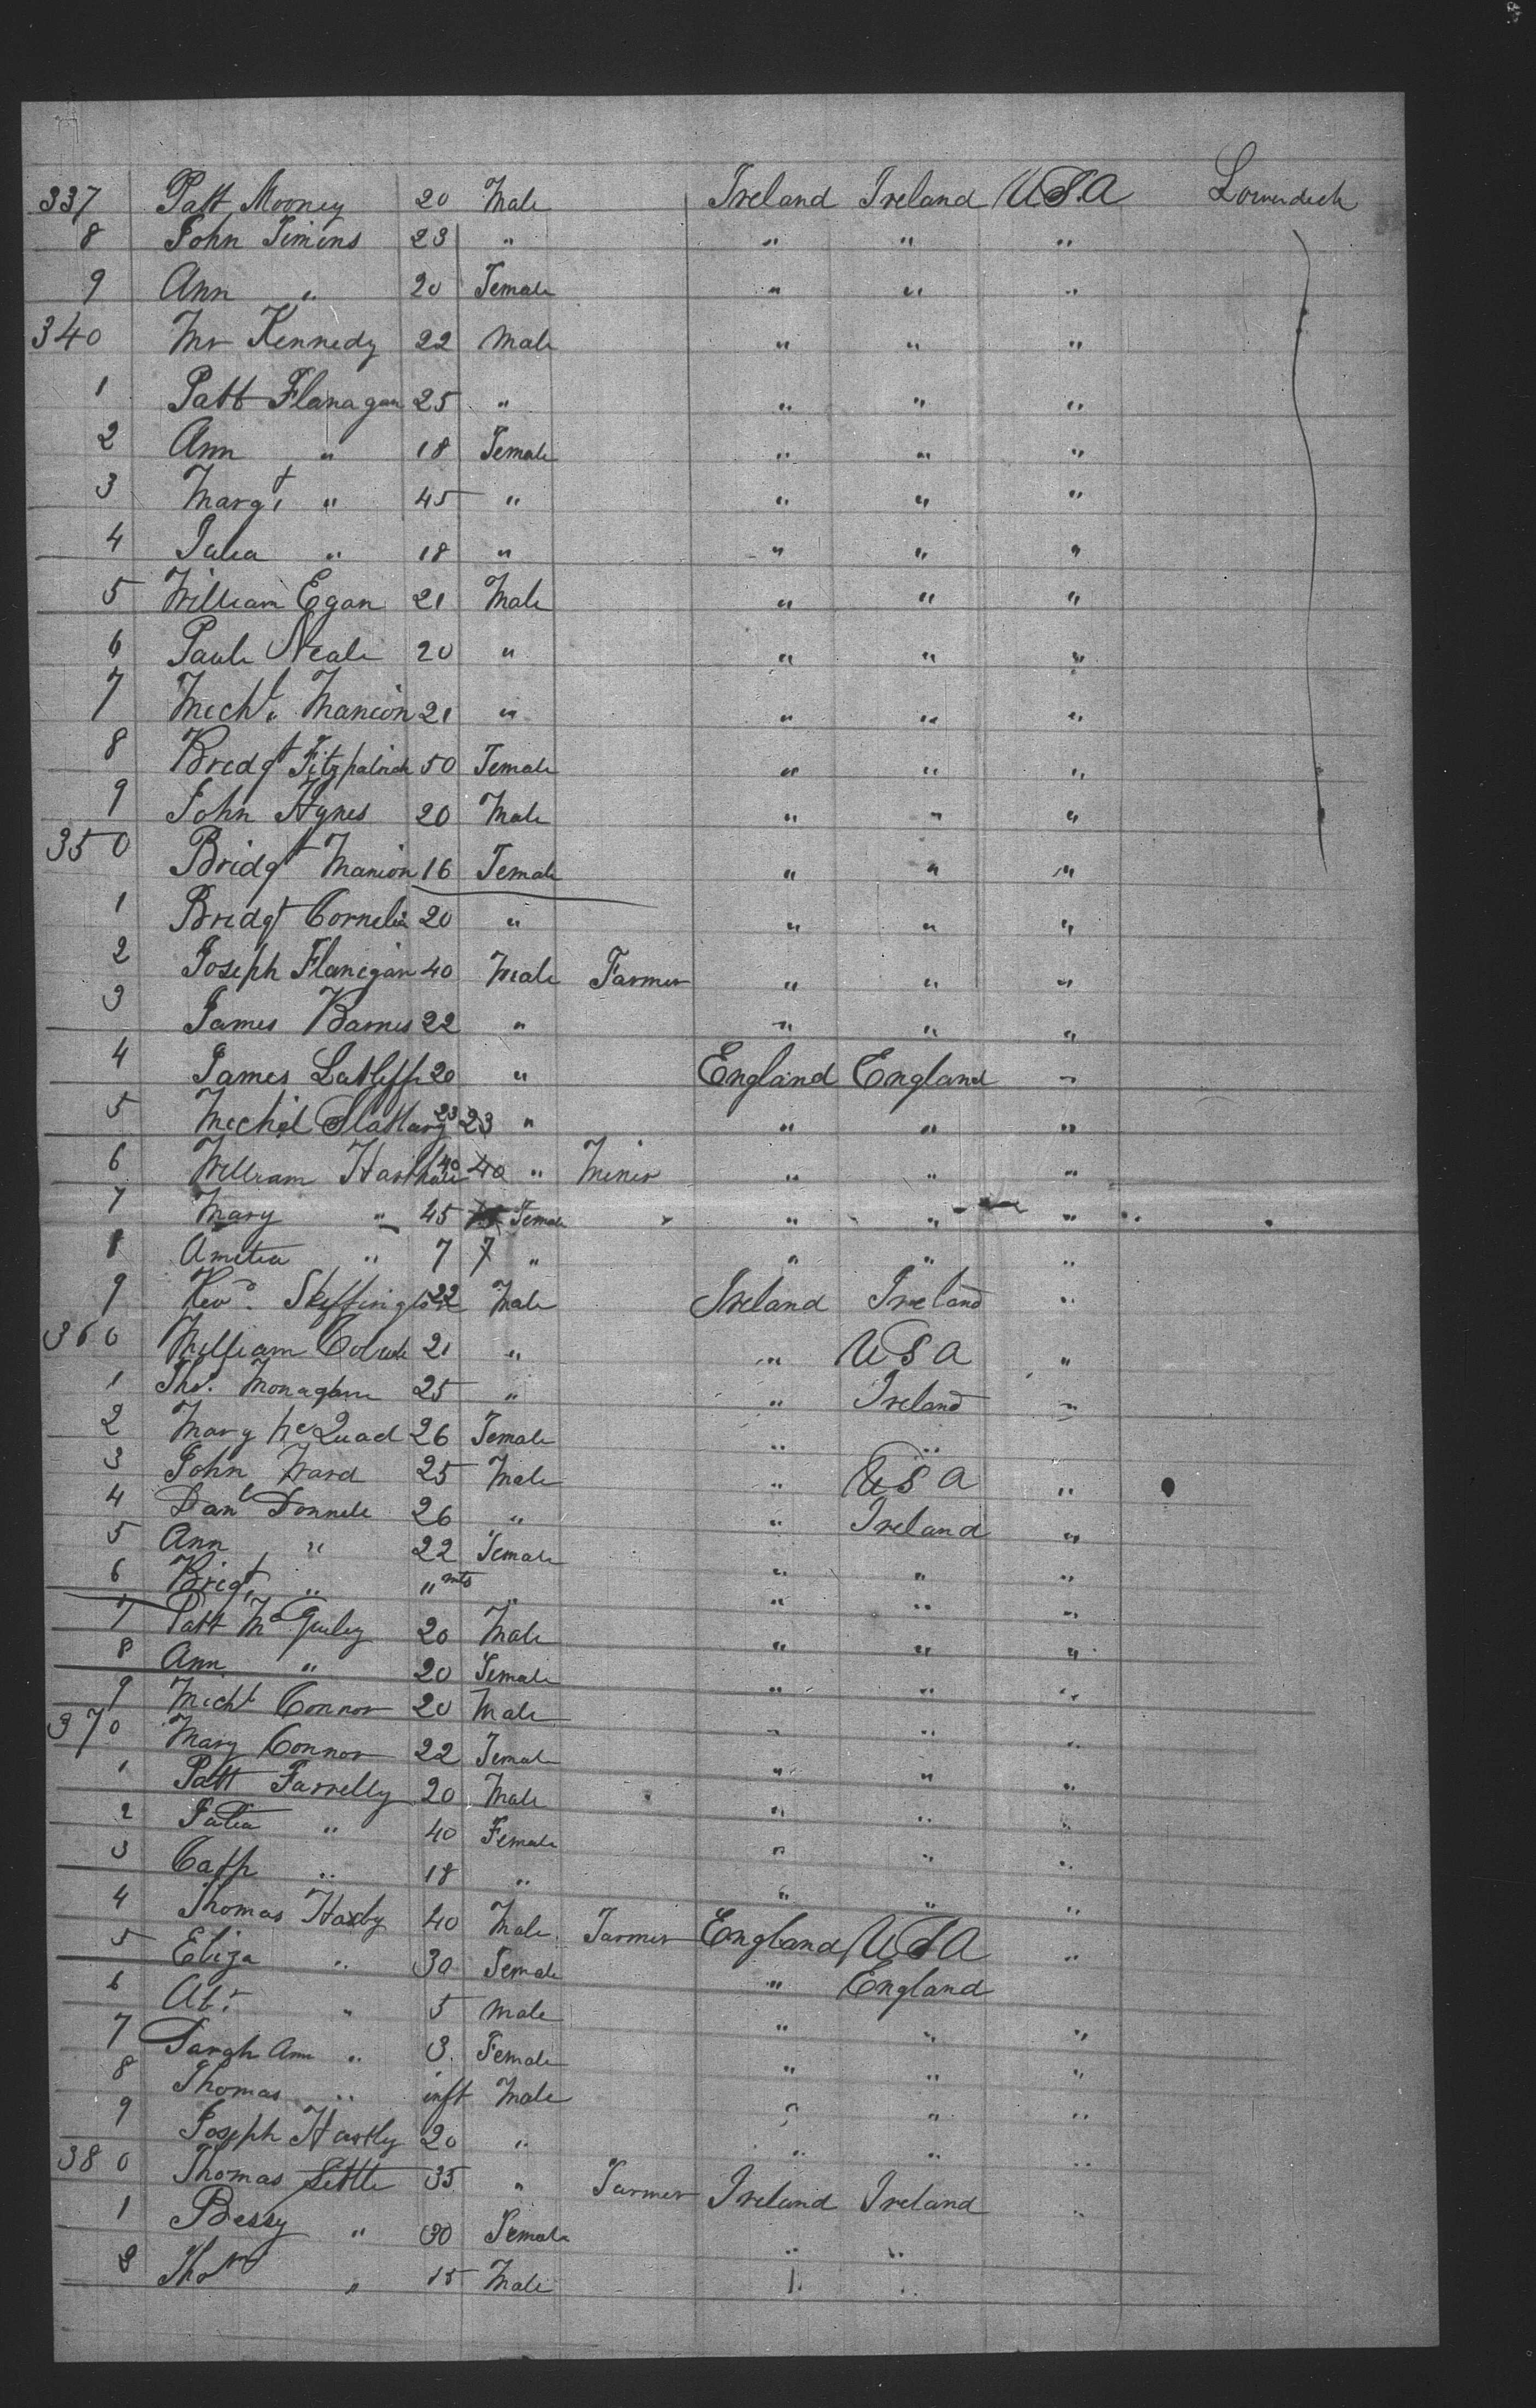 337 Patt Mooney 20 Male Ireland Ireland U.S.A Lowerdeck
8 John Timins 23 " " " "
9 Ann " 20 Female " " "
340 Mr Kennedy 22 Male " " "
1 Patt Flanagan 25 " " " "
2 Ann " 18 Female " " "
3 Margt " 45 " " " "
4 " 18 " " " "
5 William Egan 21 Male " " "
6 Neale 20 " " " "
7 Michl Manion 21 " " " "
8 Bredgt Fitzpatrick 50 Female " " "
9 John Hynes 20 Male " " "
350 Bridgt Manion 16 Female " " "
1 Bredgt Cornelia 20 " " " "
2 Joseph Flanigan 40 Male Farmer " " "
3 James Barnes 22 " " " "
4 James 20 " England England "
5 Michal Slattary 23 23 " " " "
6 William 40 40 " Miner " " "
7 Mary " 45 Female " " "
8 Amelia " 7 7 " " " "
9 Skeffington 22 Male Ireland Ireland "
360 William 21 " " U S A "
1 Thos. Monaghan 25 " " Ireland "
2 Mary McQuad 26 Female " " "
3 John Ward 25 Male " U S A "
4 Danl Donnele 26 " " Ireland "
5 Ann " 22 Female " " "
6 Brigt " " mts " " " "
7 Patt 20 Male " " "
8 Ann " 20 Female " " "
9 Michl Connor 20 Male " " "
370 Mary Connor 22 Female " " "
1 Patt Farrelly 20 Male " " "
2 " 40 Female " " "
3 Cath " 18 " " " "
4 Thomas Haxby 40 Male Farmer England U S A "
5 Eliza " 30 Female " England
6 " 5 Male " " "
7 Sarah Ann " 3 Female " " "
8 Thomas " inft Male " " "
9 Joseph 20 " " " "
380 Thomas Little 35 " Farmer Ireland Ireland "
1 Bessy " 30 Female " "
3 Thos " 15 Male " "